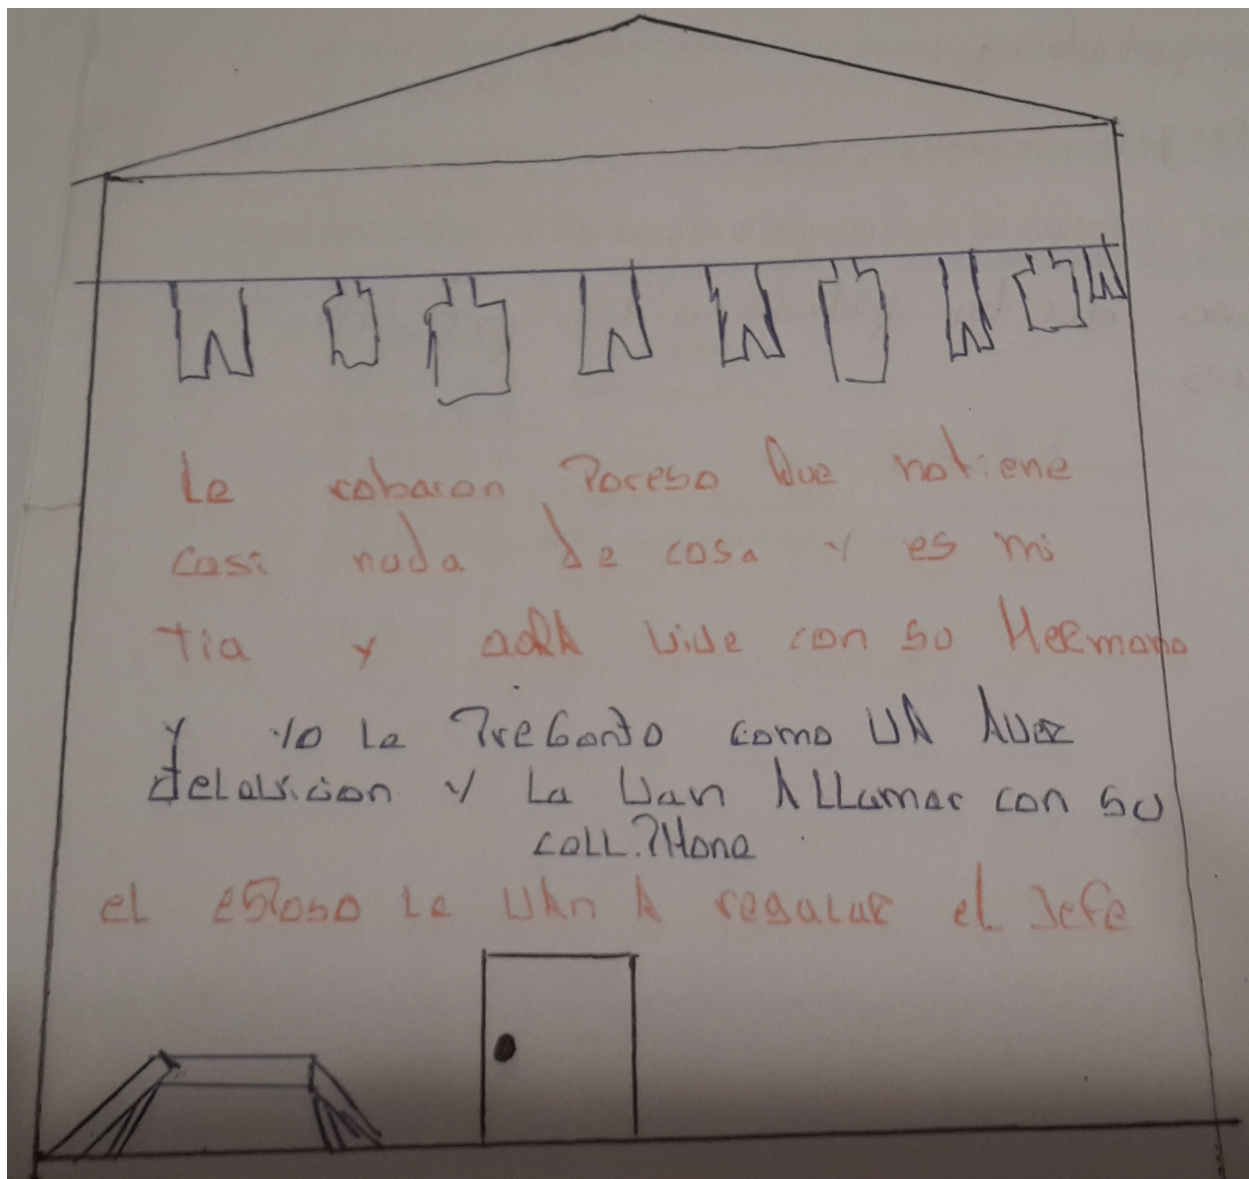 Le robaron Poreso Que notiene
casi nada de cosa y es mi
tia y aorA vive con su Hermano
y yo le PreGunto como UN Aver
y La Van A LLamar con su
cell.PHone
el esposo Le VAn A regalar el Jefe